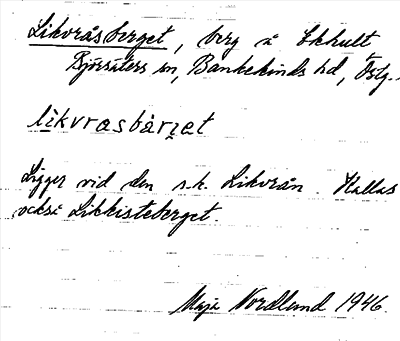 Likvråsberget, berg å Ekhult
Björsäters sn, Bankekinds hd, Östg.
likvrasbärjet
Ligger vid den s.k. Likvrån. Kallas
också Likkisteberget.
Maja Nordlund 1946.